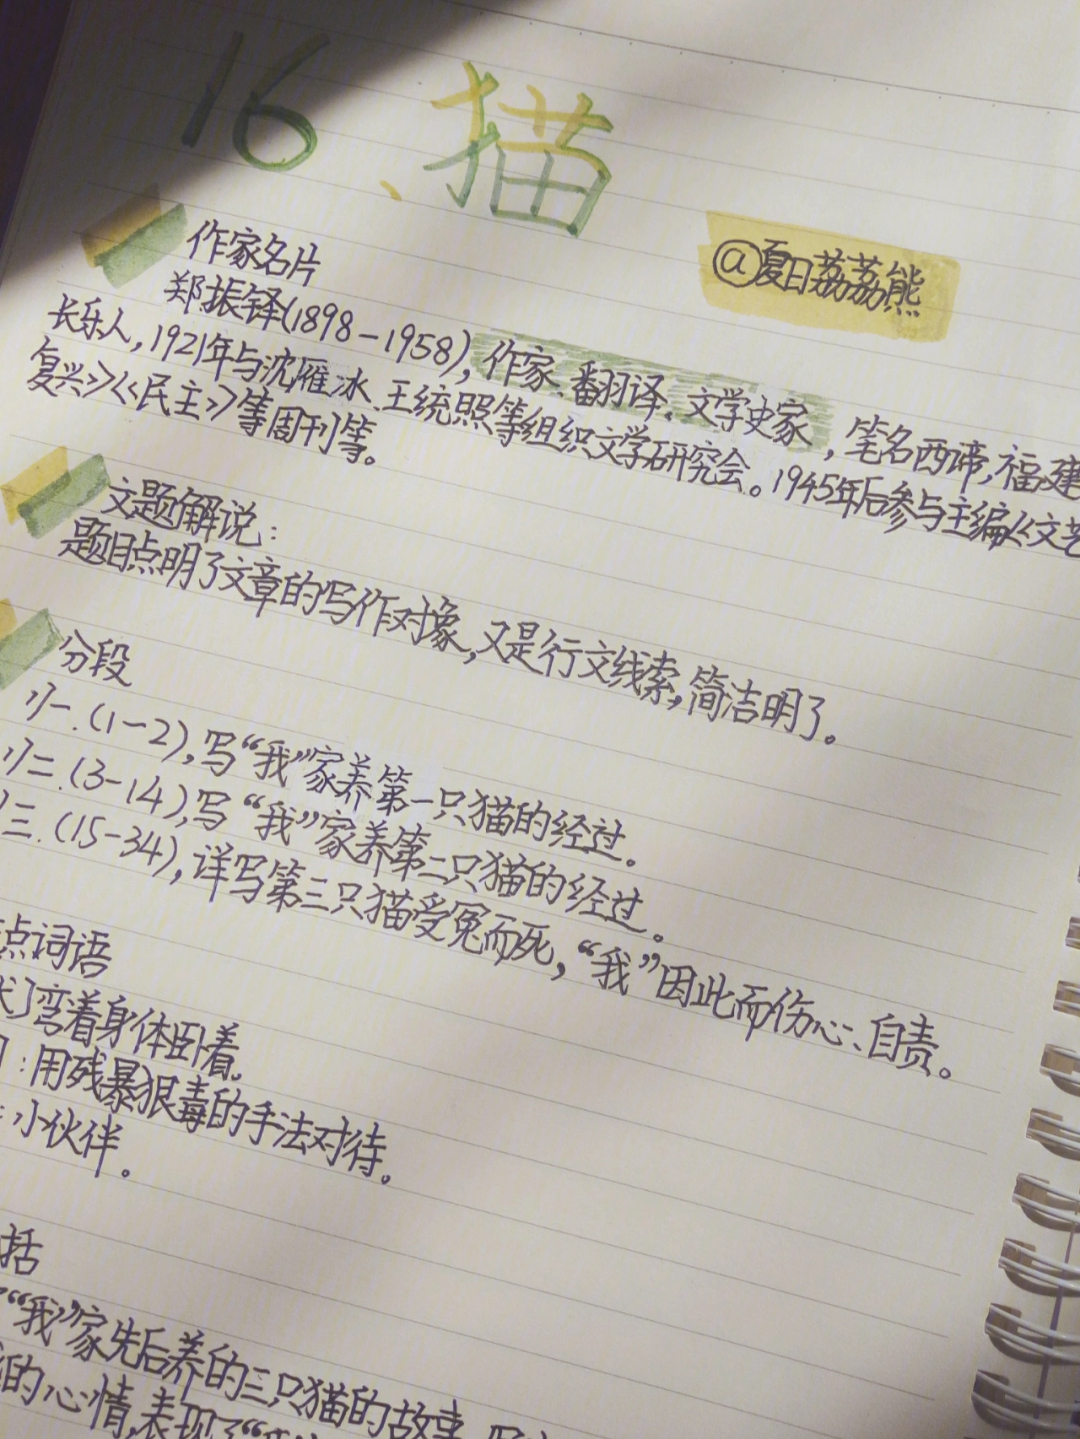 16、猫
@夏日荔荔熊
作家名片
郑振铎(1898-1958),作家、翻译、文学史家,笔名西谛,福建
长乐人,1921年与沈雁冰、王统照等组织文学研究会。1945年后参与主编《文艺
复兴》《民主》等周刊等。
文题解说:
题目点明了文章的写作对象,又是行文线索,简洁明了。
分段
一.(1-2),写“我”家养第一只猫的经过。
二.(3-14),写“我”家养第二只猫的经过。
三.(15-34),详写第三只猫受冤而死,“我”因此而伤心、自责。
点词语
弯着身体卧着。
:用残暴狠毒的手法对待。
,小伙伴。
括
“我”家先后养的三只猫的故事
的心情,表现了“